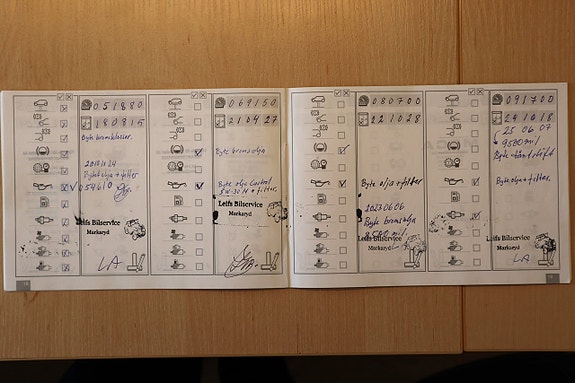 051880
180815
Byte bromsklossar.
20181124
Byte olja + filter
V 054610
Leifs Bilservice
Markaryd
LA
069150
210427
Byte bromsolja
Byte olja Castrol
5W-30 + filter.
Leifs Bilservice
Markaryd
080700
221028
Byte olja + filter
20230606
Byte bromsolja
Leifs Bilservice
Markaryd
091700
241018
25 06 07
9580 mil
Byte tändstift
Byte olja + filter.
Leifs Bilservice
Markaryd
LA